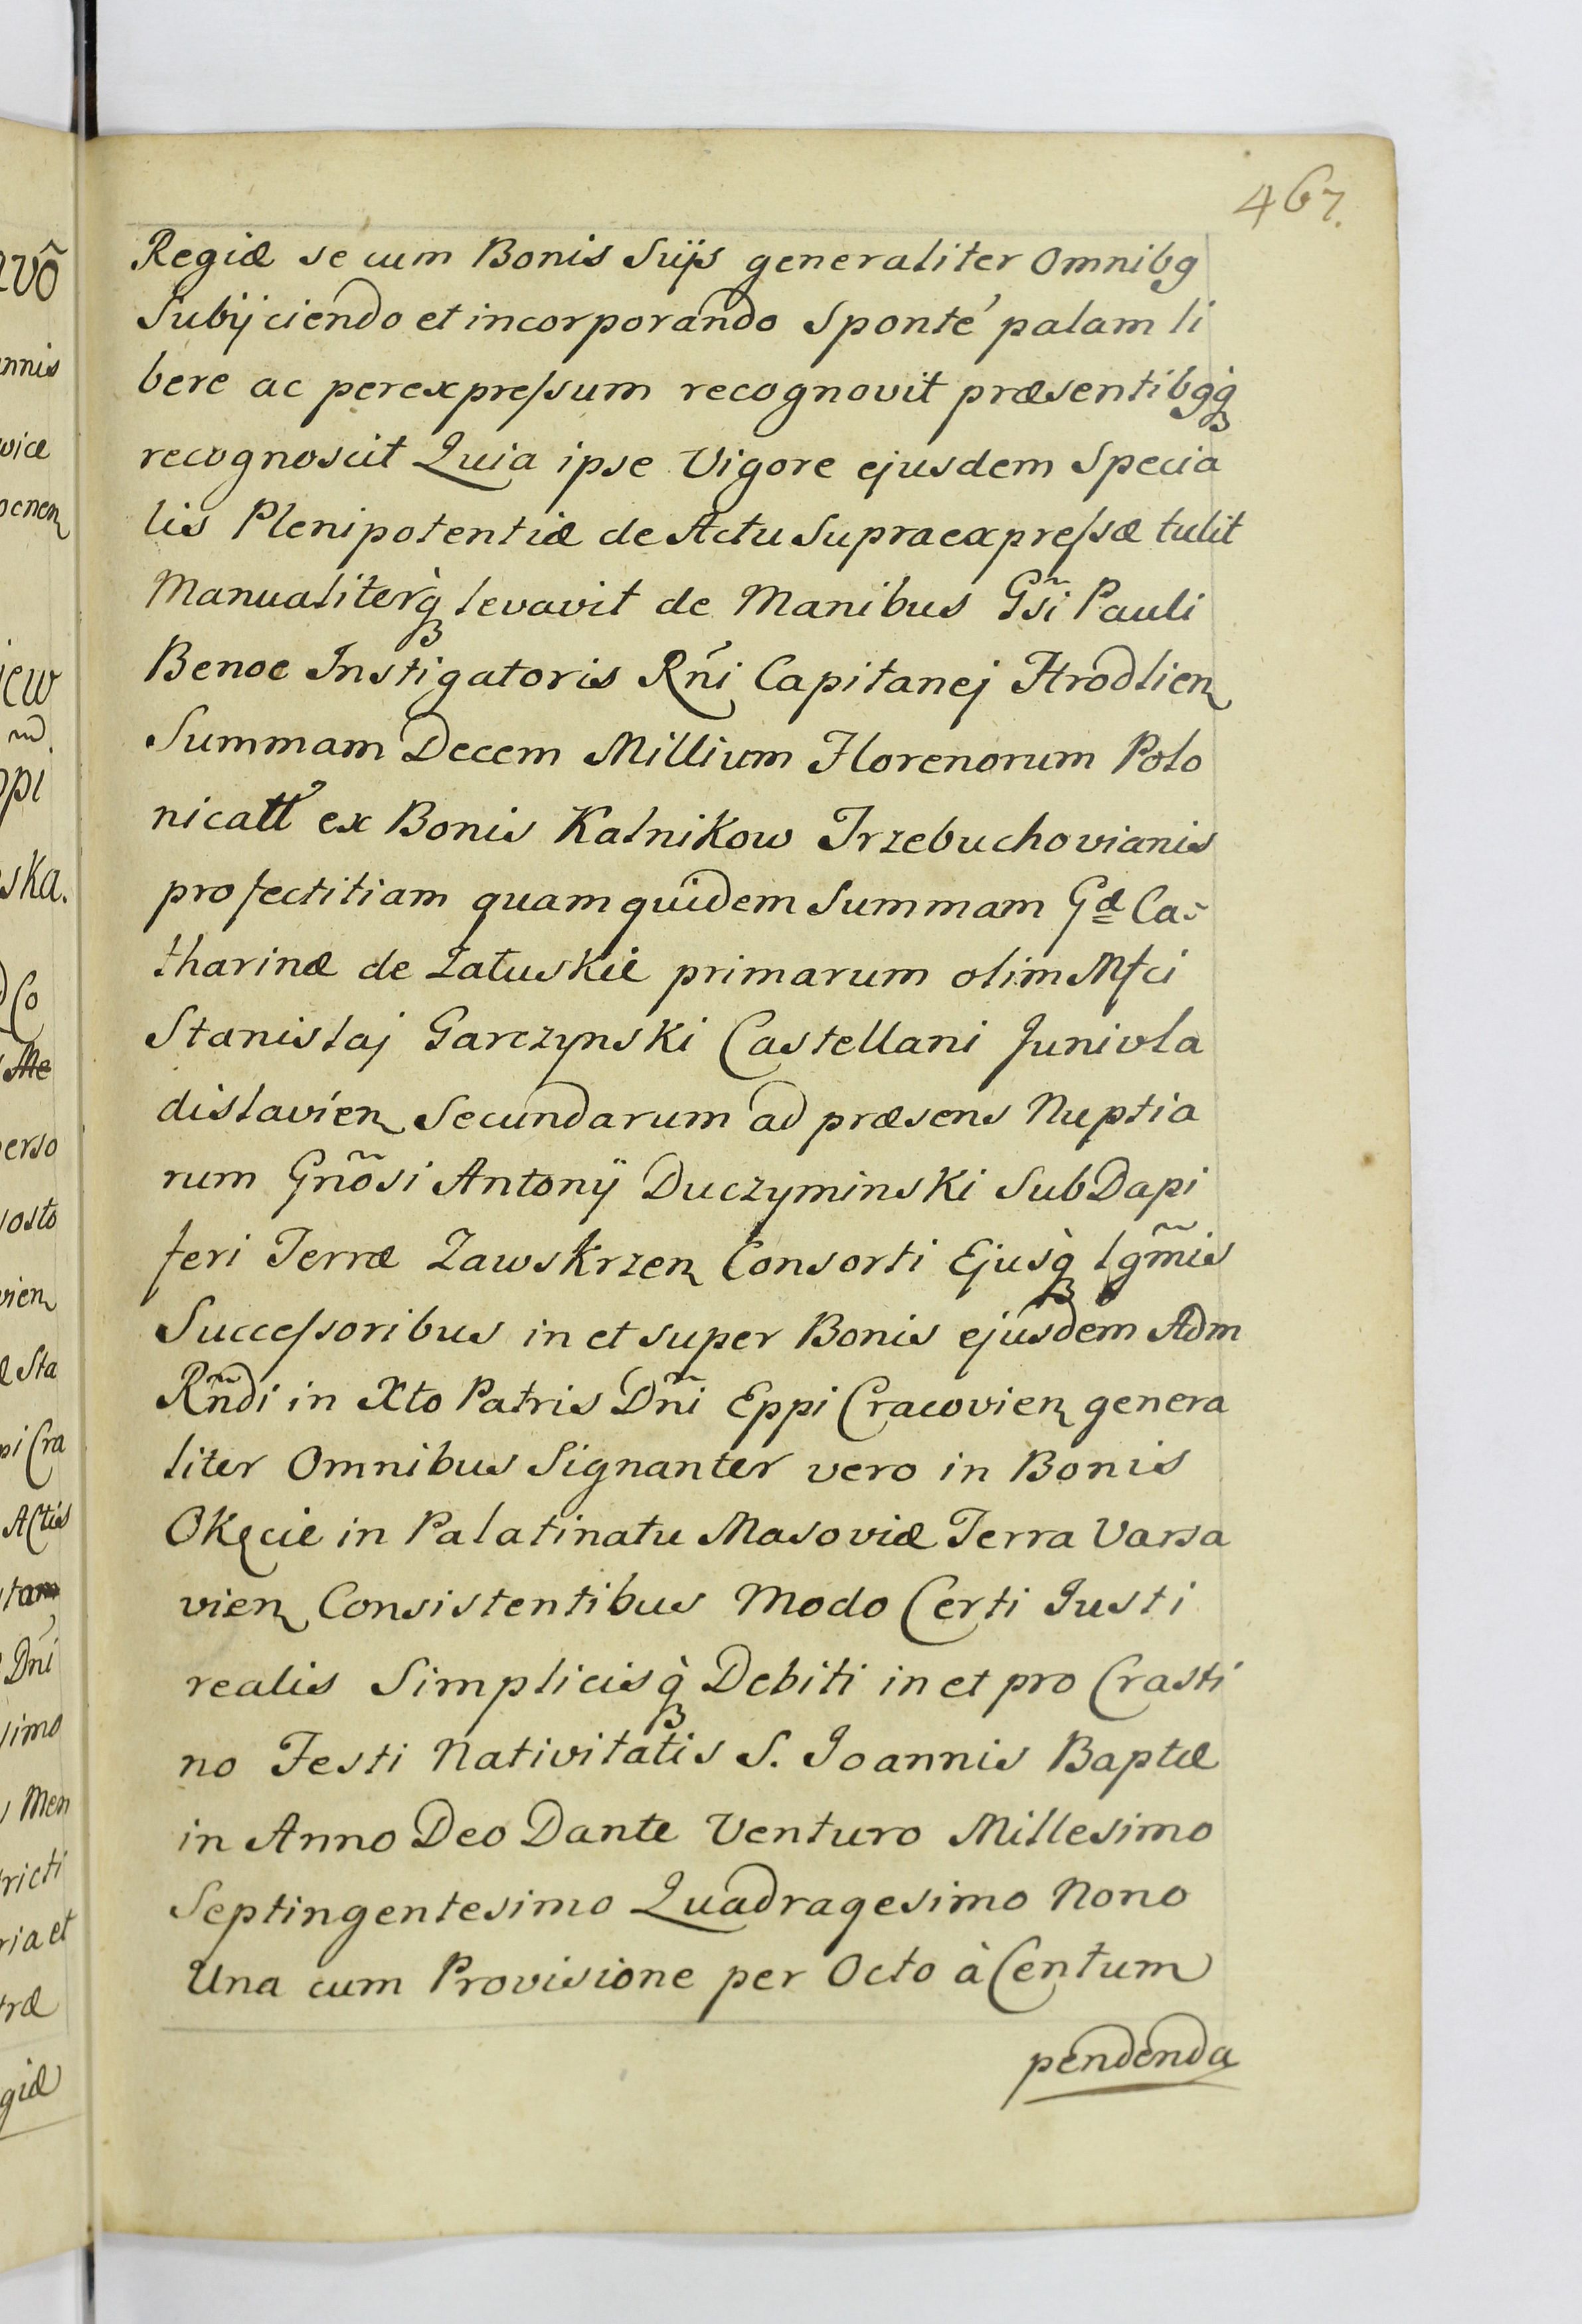 467.
Regiæ se cum Bonis Suijs generaliter Omnibg
Subijciendo et incorporando Sponté palam li
bere ac perexpreſsum recognovit præsentibgq̀ꝫ
recognoscit Quia ipse Vigore ejusdem Specia
lis Plenipotentiæ de Actu Supraexpreſsæ tulit
Manualiterq̀ꝫ levavit de Manibus Gs̃i Pauli
Benoe Instigatoris Rńi Capitanej Hrodlien
Summam Decem Millium Florenorum Polo
nicatt ex Bonis Kalnikow Trzebuchovianis
profectitiam quam quidem Summam Gæ Ca-
tharinæ de Załuskie primarum olim Mfci
Stanislaj Garczynski Castellani Junivla
dislavien Secundarum ad præsens Nuptia
rum Gnõsi Antonij Duczyminski SubDapi
feri Terræ Zawskrzen Consorti Ejusq̀ꝫ lgm̃is
Succeſsoribus in et super Bonis ejusdem Adm
Rñdi in Xto Patris Dñi Eppi Cracovien genera
liter Omnibus Signanter vero in Bonis
Okęcie in Palatinatu Masoviæ Terra Varsa
vien Consistentibus Modo Certi Justi
realis Simplicisq̀ꝫ Debiti in et pro Crasti
no Festi Nativitatis S. Joannis Baptæ
in Anno Deo Dante Venturo Millesimo
Septingentesimo Quadragesimo Nono
Una cum Provisione per Octo à Centum
pendenda